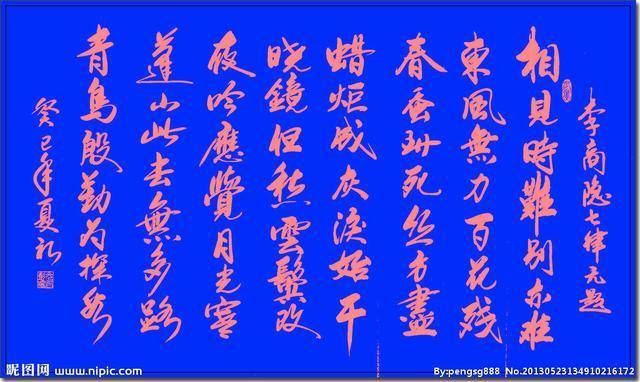 李商隐七律无题
相見時難别亦难
東風無力百花残
春蚕到死丝方盡
蜡炬成灰淚始干
晓鏡但愁雲鬓改
夜吟應覺月光寒
蓬山此去無多路
青鳥殷勤为探看
癸巳年夏
昵图网 www.nipic.com
By:pengsg888 No.20130523134910216172